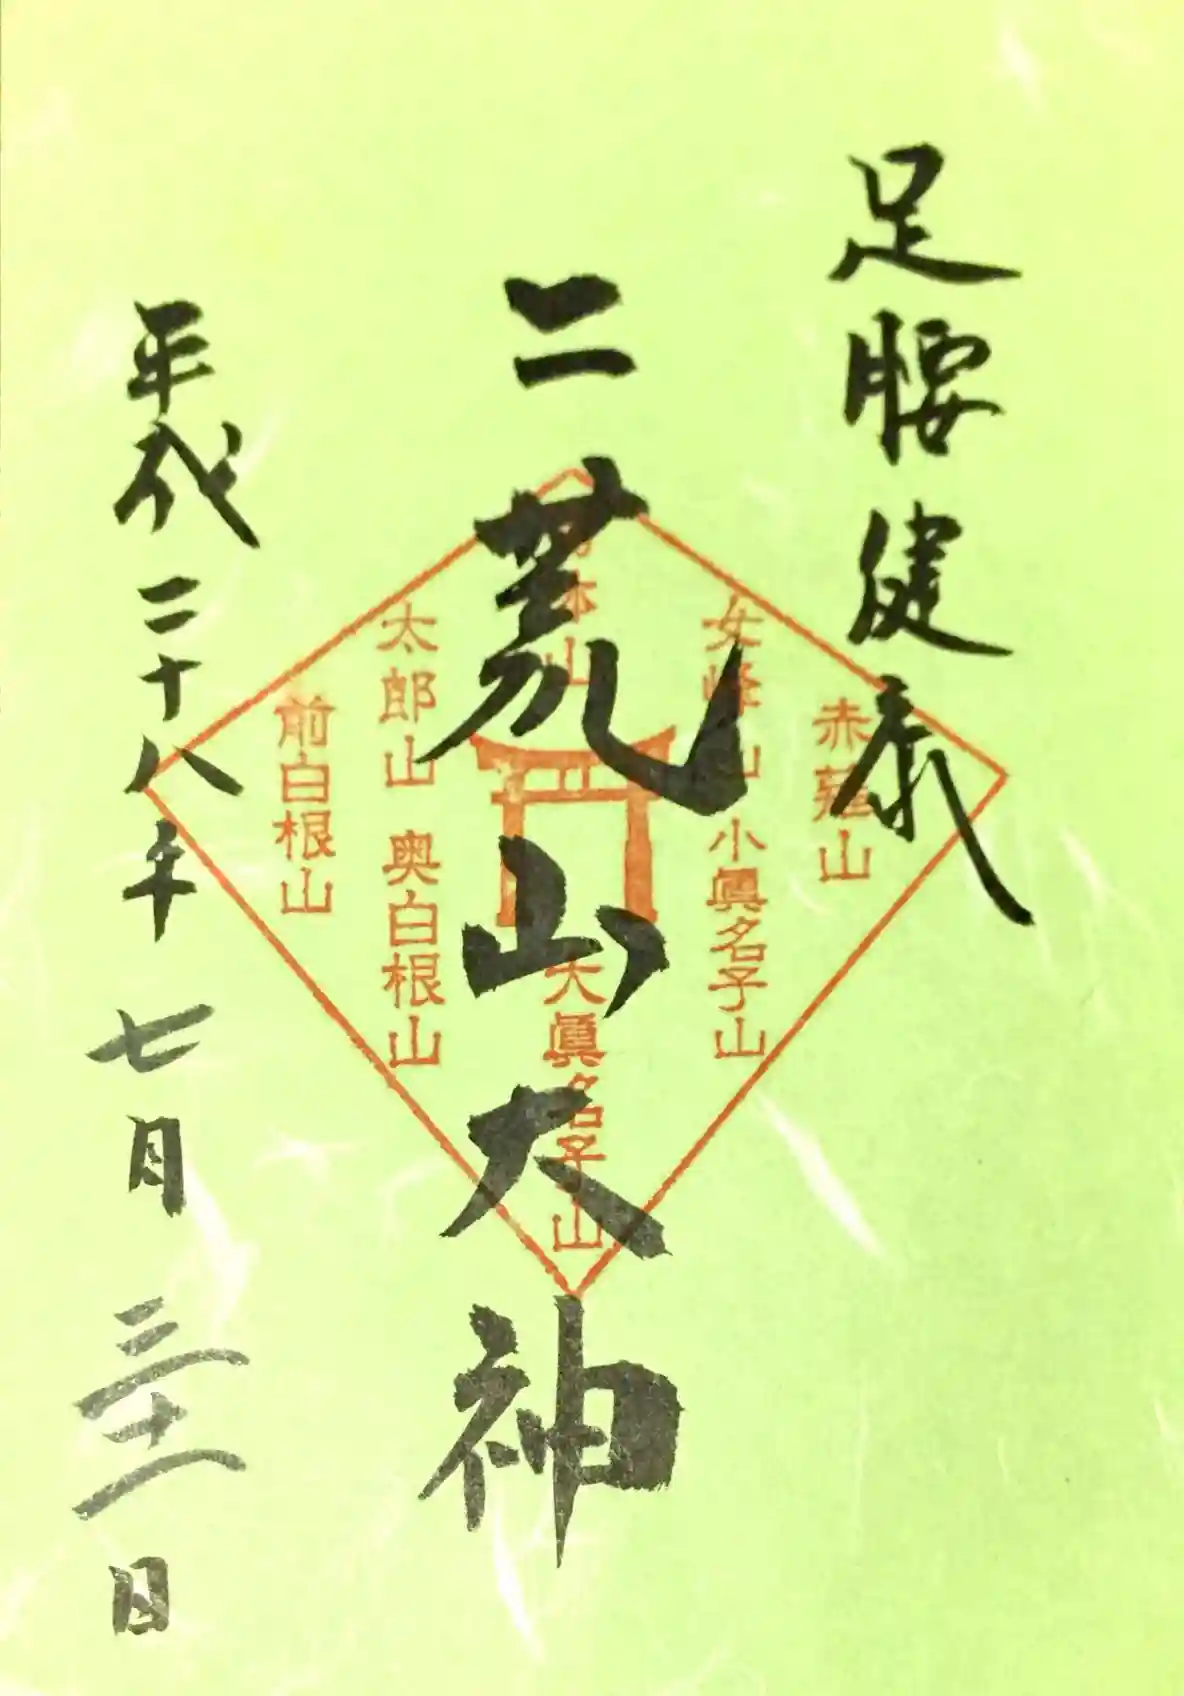 足腰健康
二荒山大神
平成二十八年 七月 三十一日
赤薙山
女峰山 小眞名子山
大眞名子山
太郎山 奥白根山
前白根山